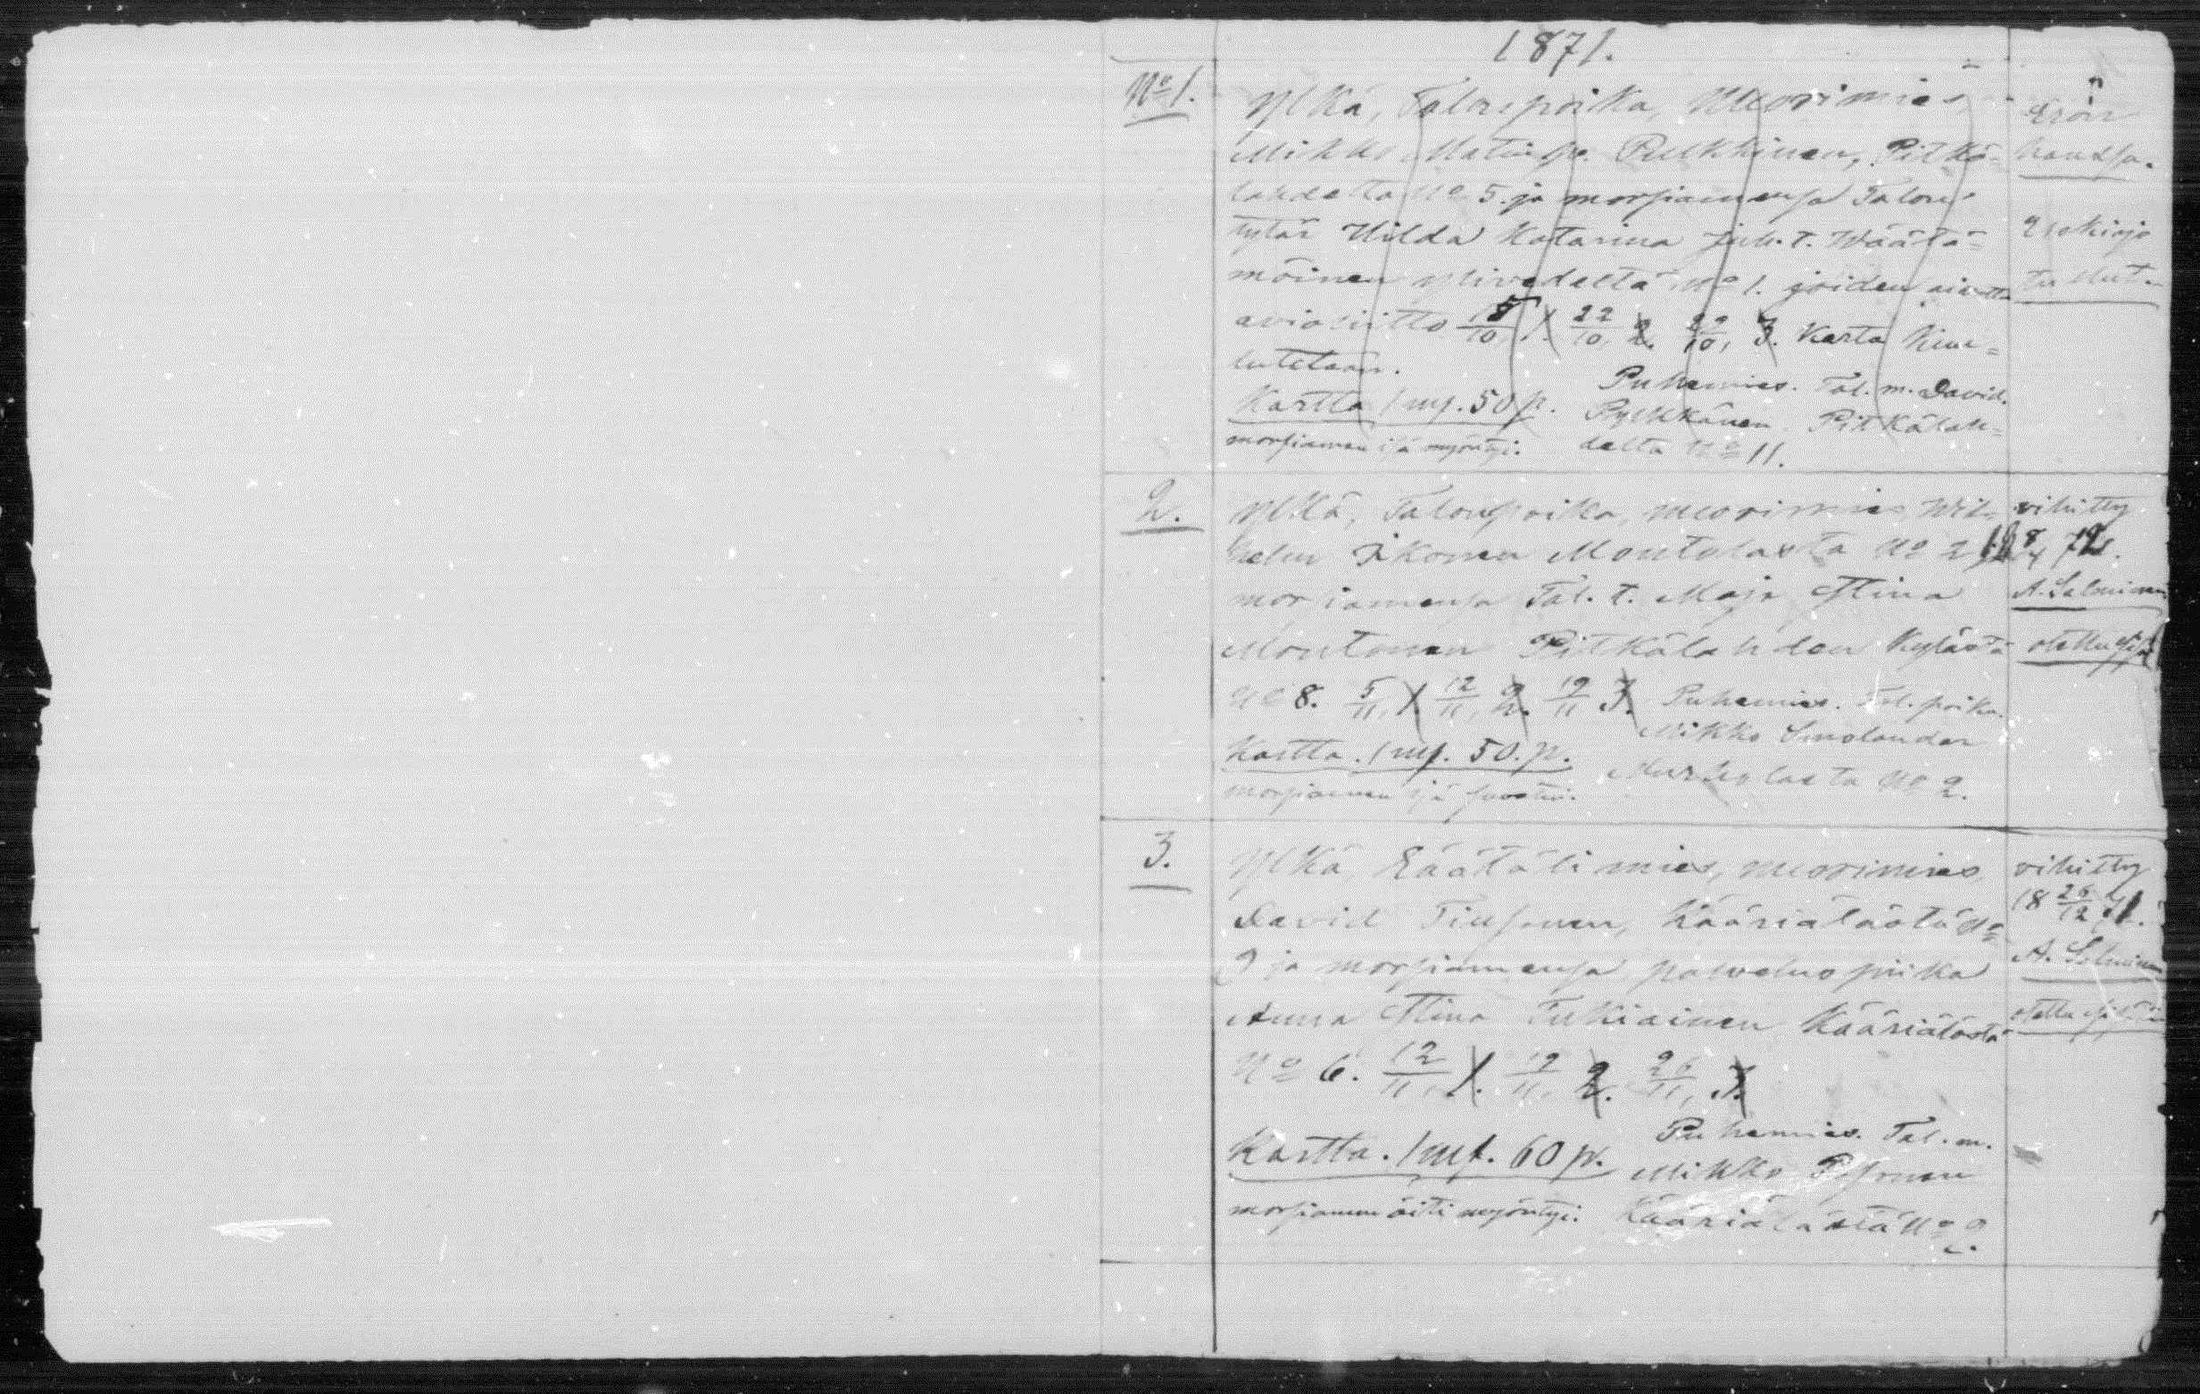 1871.
No 1.
Ylkä, Talonpoika, Nuorimies
Mikko Matinp. Pulkkinen, Pitkä-
lahdelta No 5. ja morsiamensa Talon
tytär Hilda Katarina Juh. t. Wäätä-
möinen Ylivedeltä No 1. joiden aiottu
avioliitto 15/10, 1. 22/10, 2. 29/10, 3. Kerta kuu-
lutetaan.
Kartta 1 mp. 50 p.
morsiamen isä myöntyi.
Puhemies. Tal. m. David.
Pylkkänen Pitkälah-
delta No 11.
Eron
hausa.
Erokirja
tullut.
2.
Ylkä, Talonpoika, nuorimies Wil-
helm Ikonen Montolasta No 2
morsiamensa Tal. t. Maja Stina
Montonen Pitkälahden kylästä
No 8. 5/11, 1. 12/11, 2. 19/11 3.
Kartta. 1 mp. 50. p.
morsiamen isä suostui.
Puhemies. Tal. poika.
Mikko Smolander
No 2.
vihitty
18 72.
A. Salminen
otettu
3.
Ylkä, Räätäli mies, nuorimies
David Tiusanen, Kääriälästä No
9 ja morsiamensa palvelus piika
Anna Stina Tukiainen Kääriälästä
No 6. 12/11, 1. 19/11, 2. 26/11, 3.
Kartta. 1 mp. 60 p.
morsiamen äiti myöntyi.
Puhemies. Tal. m.
Mikko
Kääriälästä No 2.
vihitty
18 26/12 71.
A. Salminen
otettu